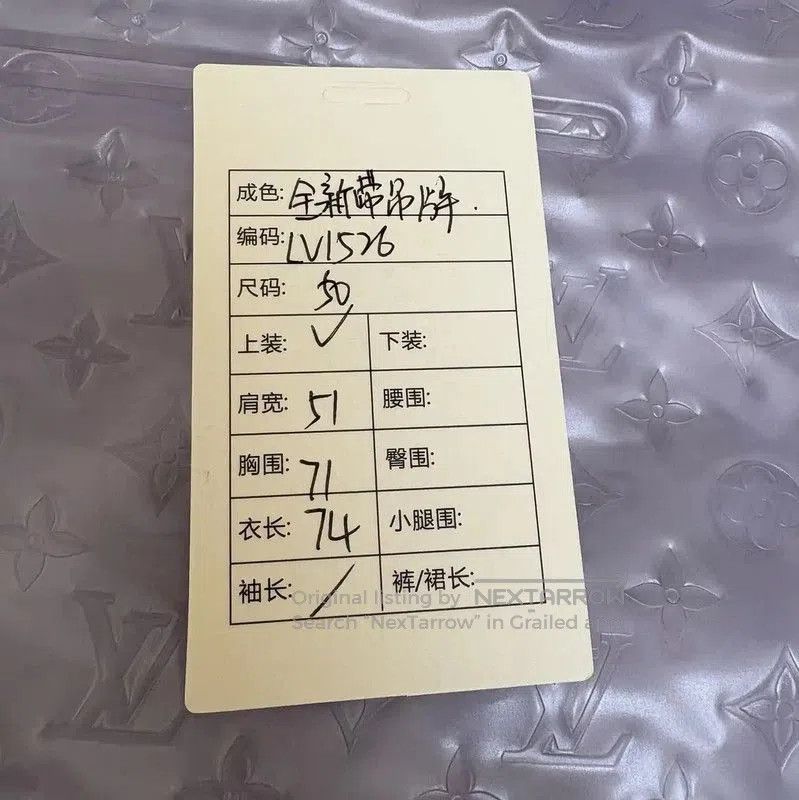 成色: 全新带吊牌.
编码: LV1526
尺码: 50
上装: ✓ 下装:
肩宽: 51 腰围:
胸围: 71 臀围:
衣长: 74 小腿围:
袖长: / 裤/裙长:
Original listing by NEXTARROW
Search "NexTarrow" in Grailed a